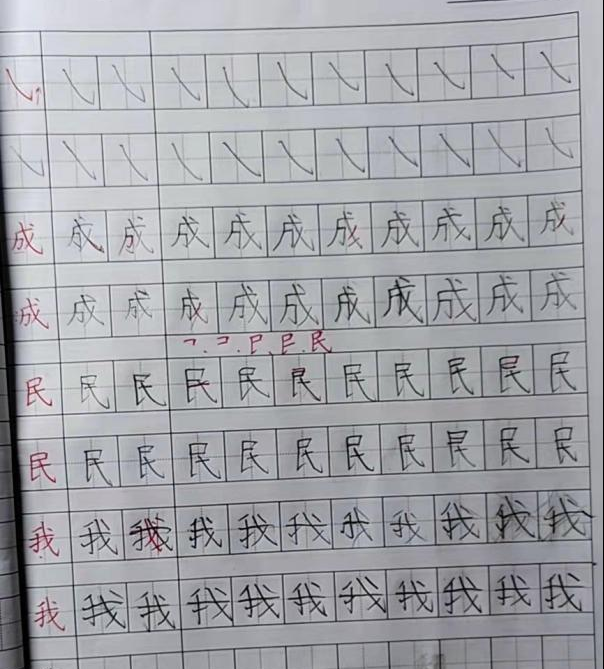 ㇂ ㇂ ㇂ ㇂ ㇂ ㇂ ㇂ ㇂ ㇂ ㇂ ㇂
㇂ ㇂ ㇂ ㇂ ㇂ ㇂ ㇂ ㇂ ㇂ ㇂ ㇂
成 成 成 成 成 成 成 成 成 成 成
成 成 成 成 成 成 成 成 成 成 成
民
民 民 民 民 民 民 民 民 民 民 民
民 民 民 民 民 民 民 民 民 民 民
我 我 我 我 我 我 我 我 我 我 我
我 我 我 我 我 我 我 我 我 我 我